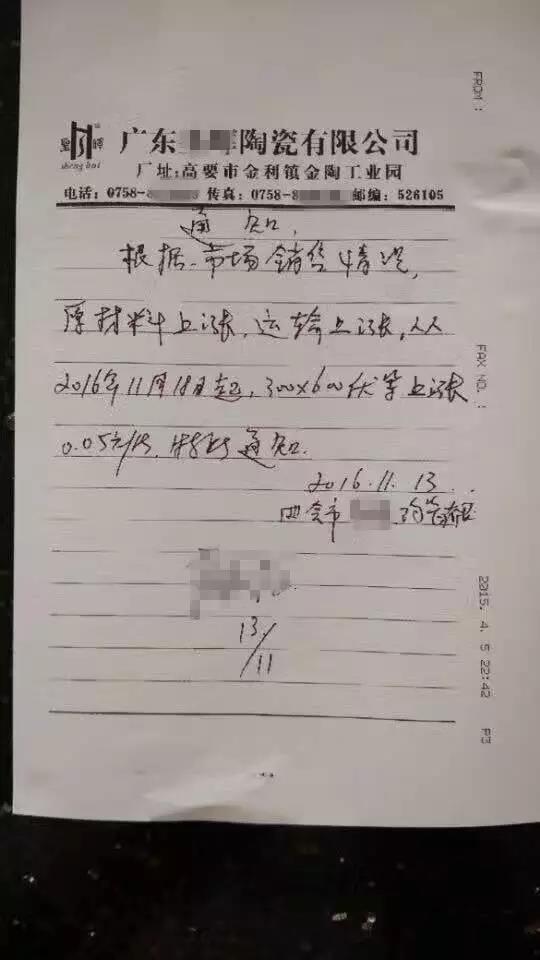 聖暉
sheng hui
广东 陶瓷有限公司
厂址:高要市金利镇金陶工业园
电话:0758-8 传真:0758-8 邮编:526105
通知
根据市场销售情况,
原材料上涨,运输上涨,从
2016年11月18日起,300×600 等上涨
0.05元/片,特此通知.
2016.11.13
四会市
13/11
FROM :
FAX NO. :
2015. 4. 5 22:42 P3